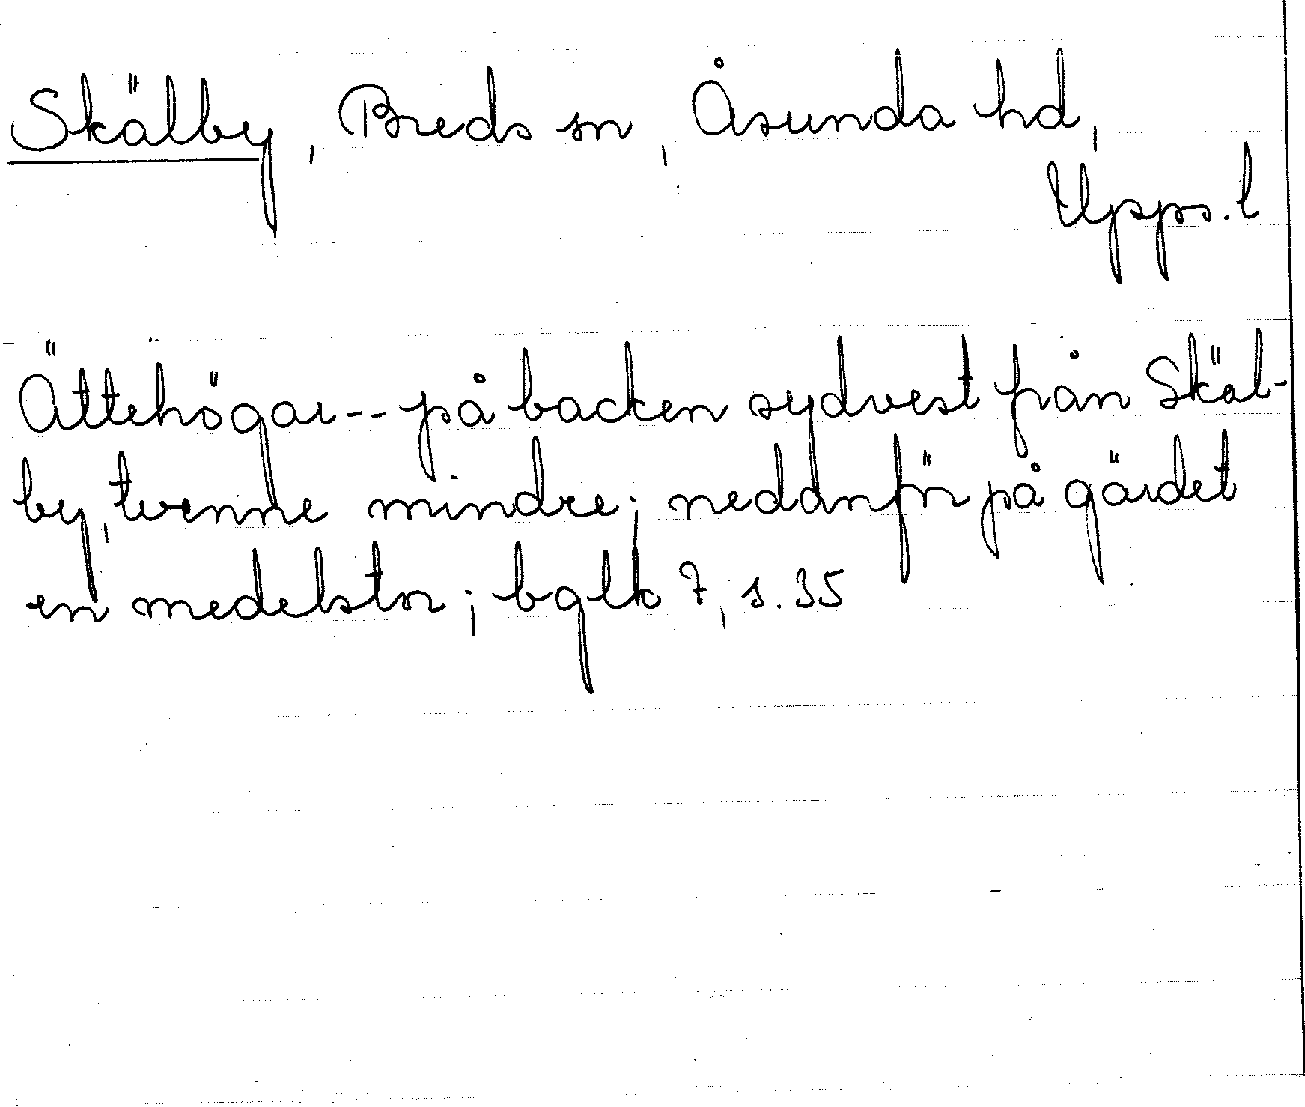 Skälby, Breds sn, Åsunda hd,
Upps. l
Ättehögar -- på backen sydvest från Skäl-
by, tvenne mindre; neddnför på gärdet
en medelstor; bglk 7, s. 35